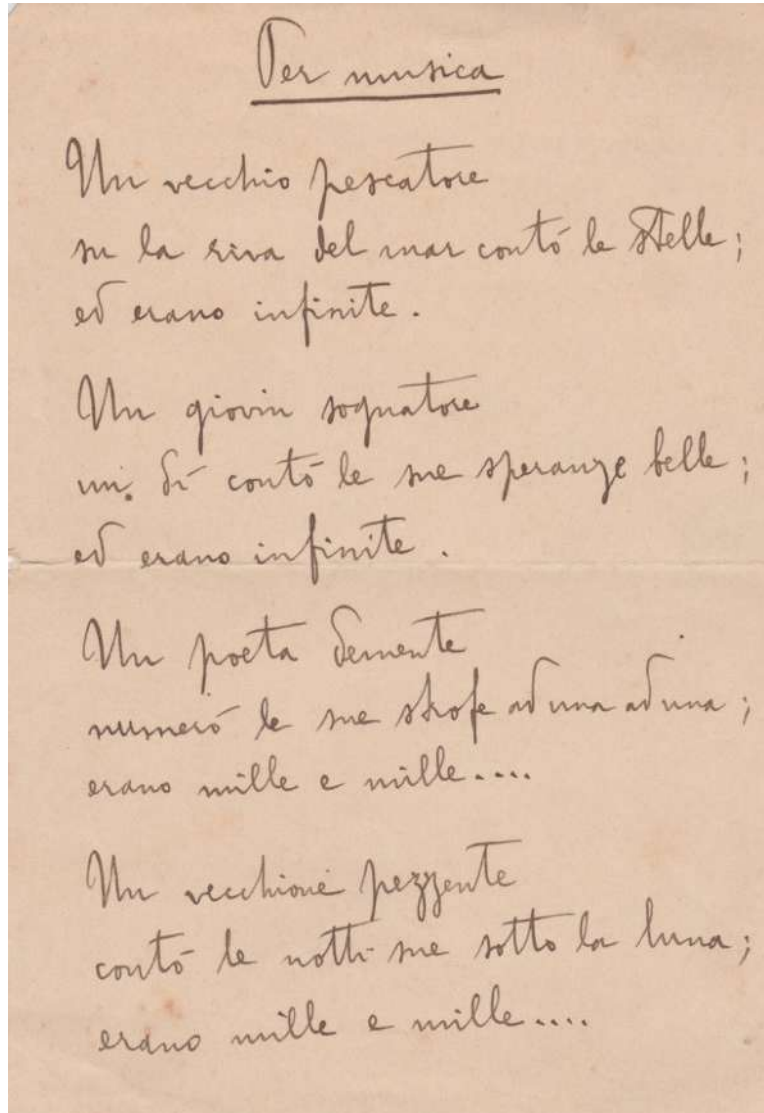 Per musica
Un vecchio pescatore
su la riva del mar contò le stelle;
ed erano infinite.
Un giovin sognatore
un dì contò le sue speranze belle;
ed erano infinite.
Un poeta demente
numerò le sue strofe ad una ad una;
erano mille e mille....
Un vecchione pezzente
contò le notti sue sotto la luna;
erano mille e mille....